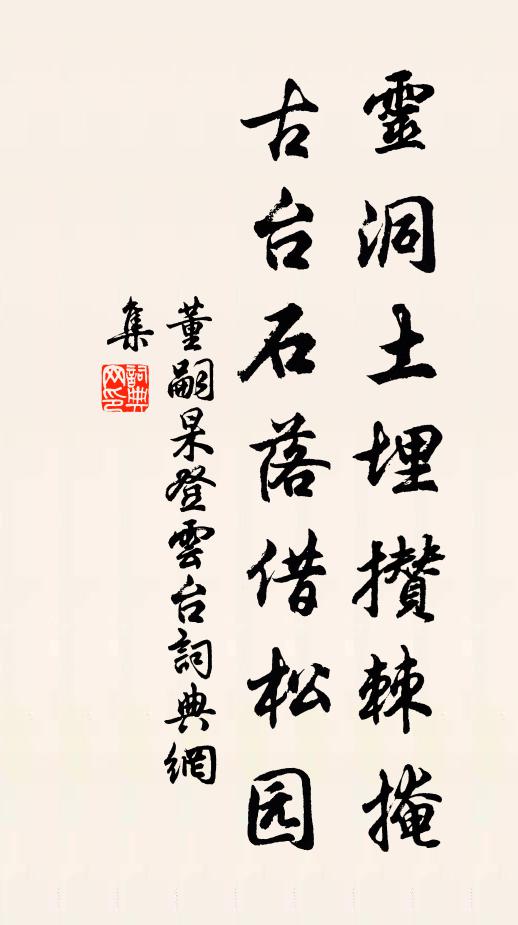 靈洞土埋攢棘掩
古台石落借松园
董嗣杲登雲台詞典網
集
詞典
网印